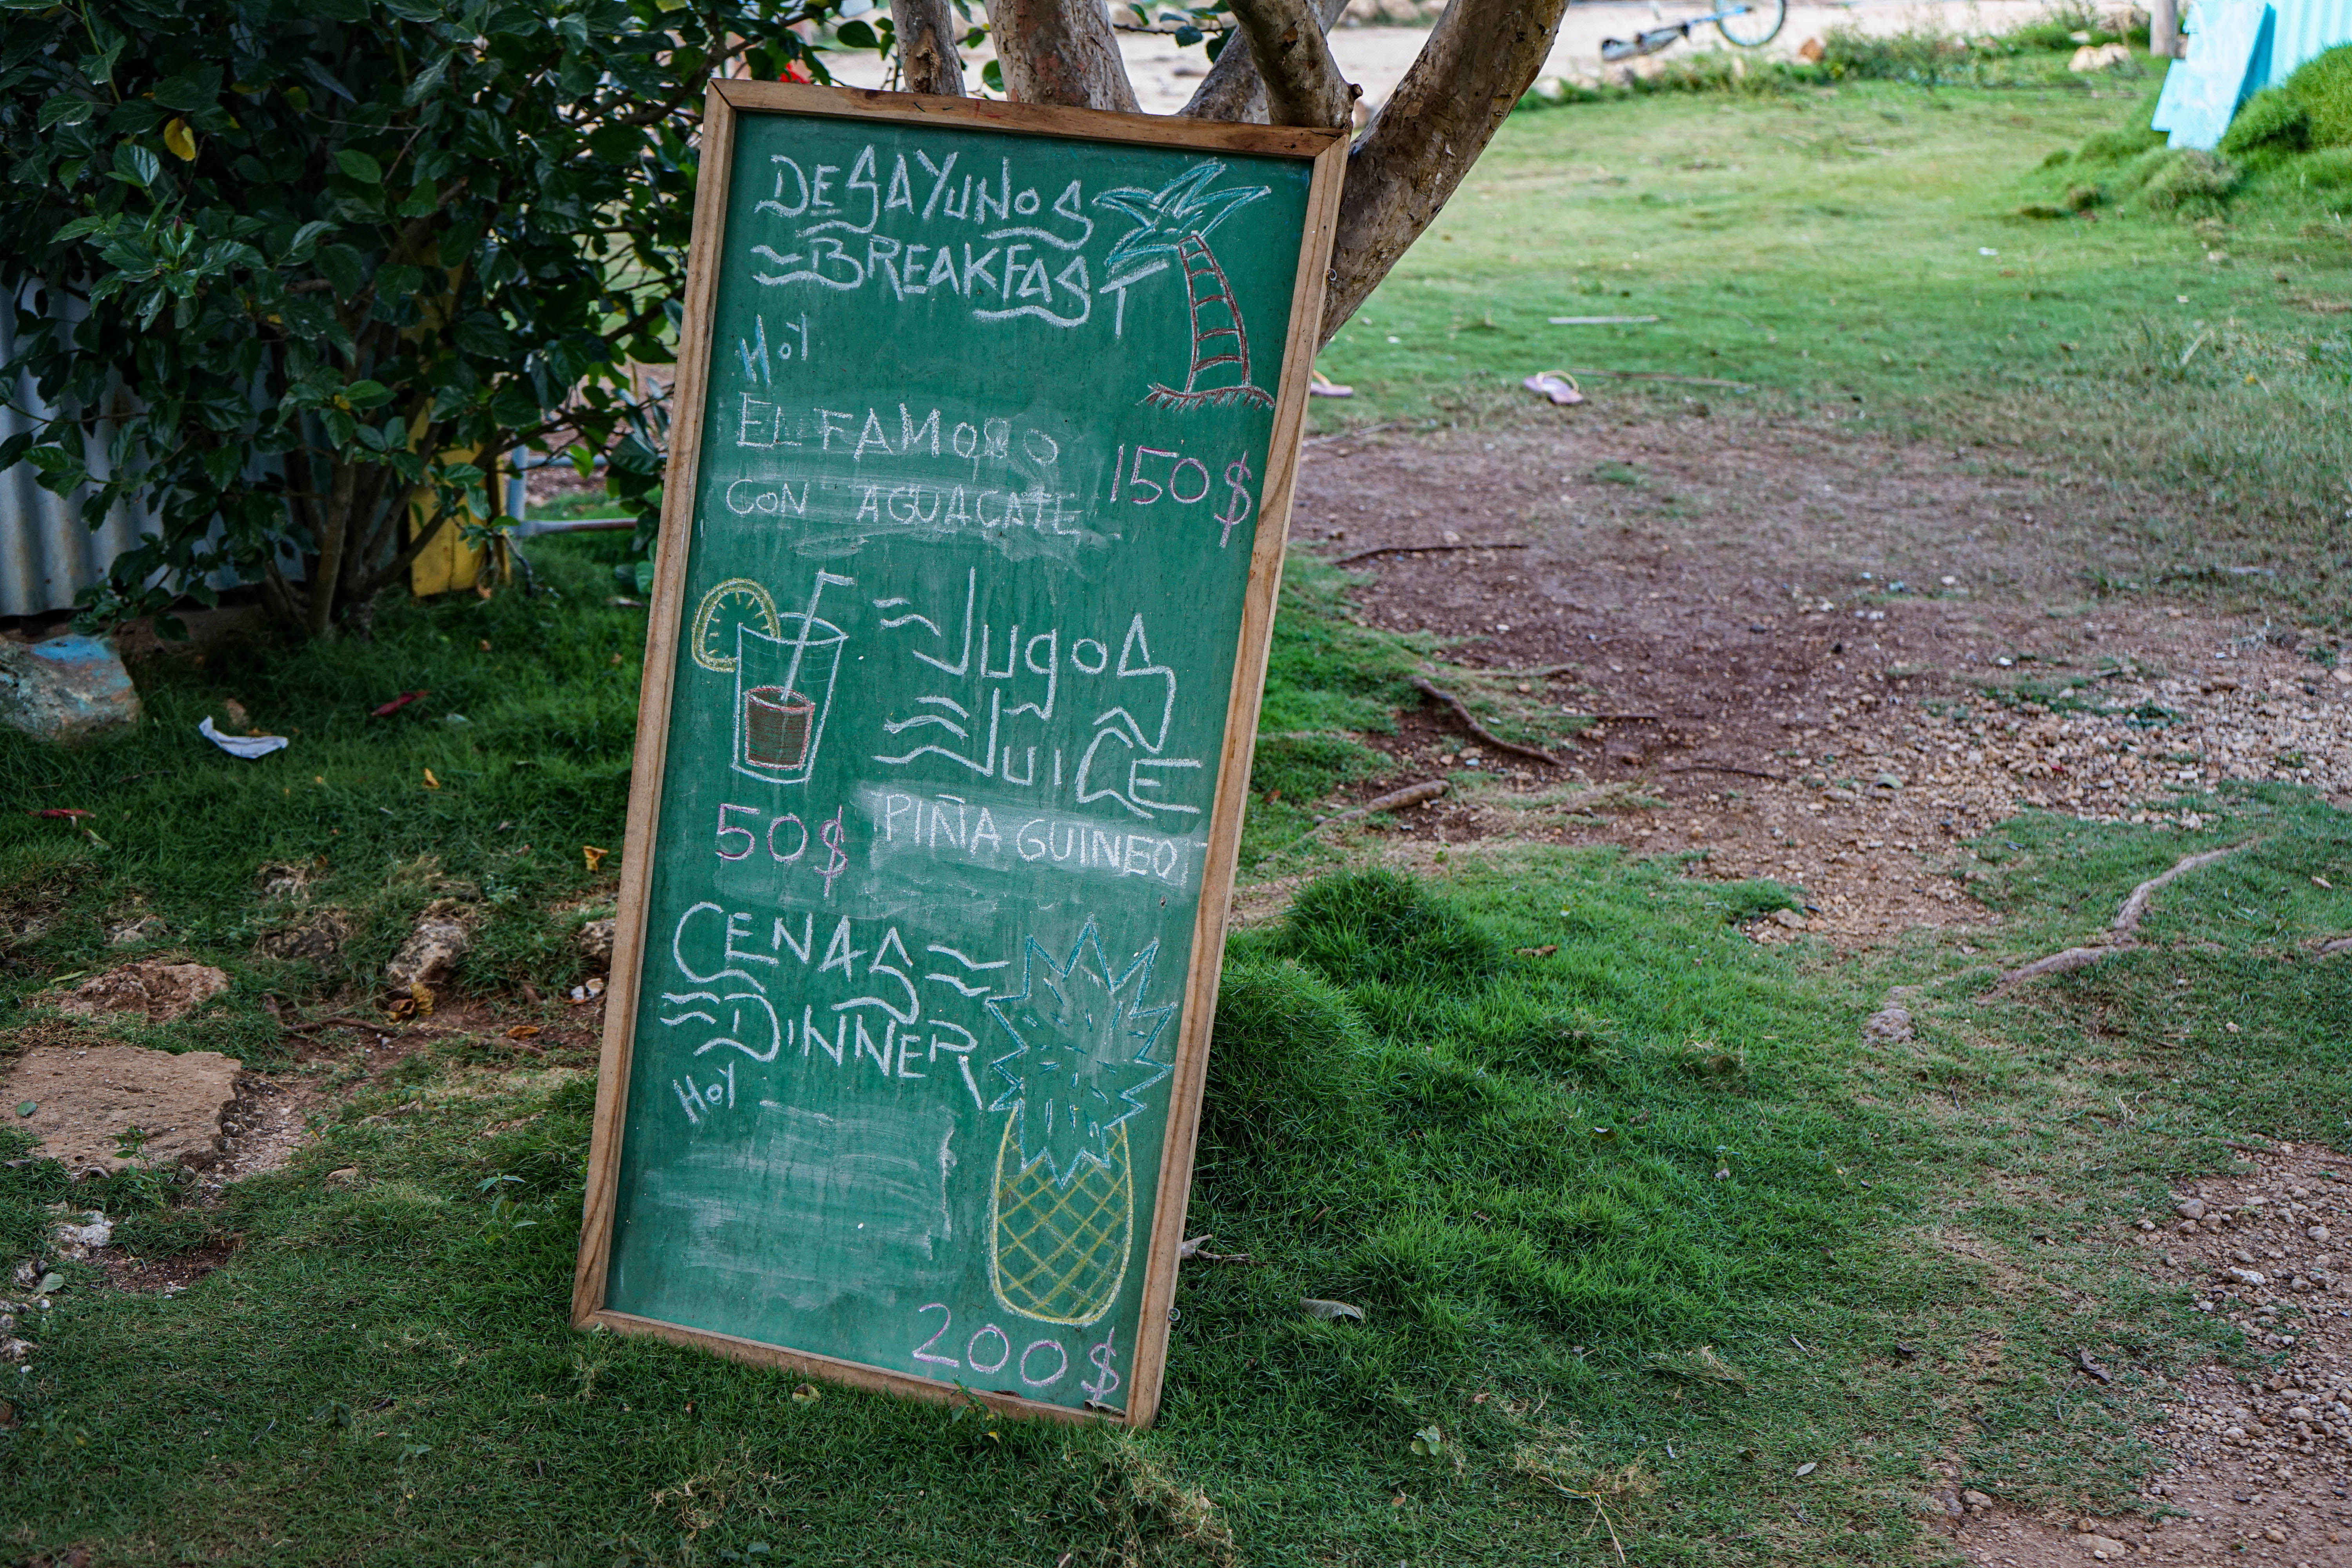 DESAYUNOS
BREAKFAST
HOY
EL FAMOSO
CON AGUACATE 150$
JUGOS
JUICE
50$ PIÑA GUINEO
CENAS
DINNER
HOY
200$